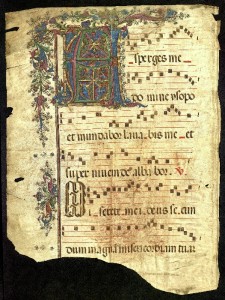 Asperges me
domine ysopo
et mundabor lauabis me et
super niuem dealbabor.
Miserere mei deus secun
dum magnam misericordiam tuam